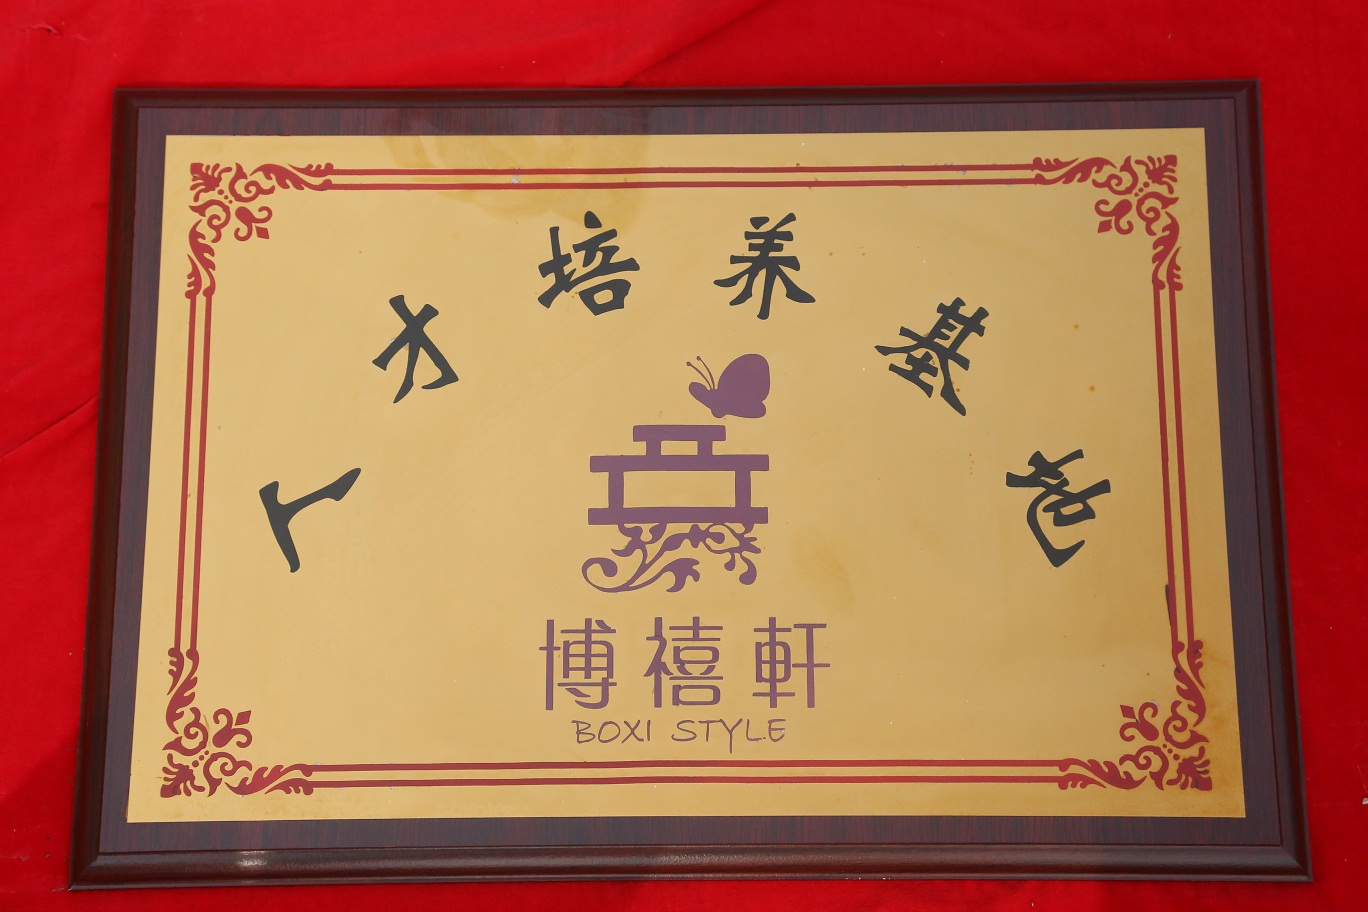 人才培养基地
博禧軒
BOXI STYLE